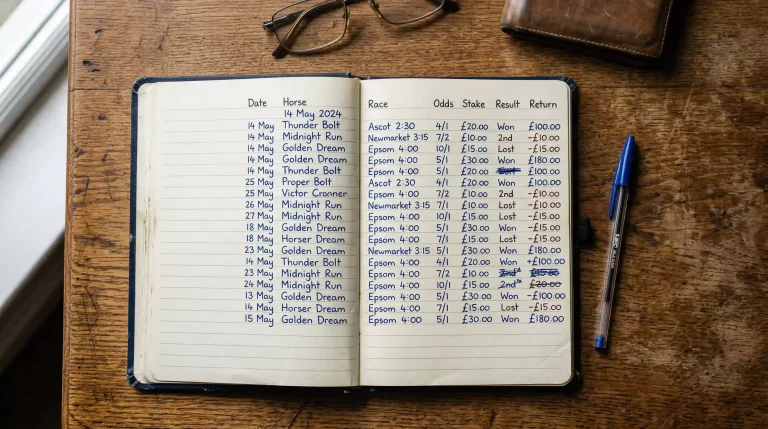 Date Horse Race Odds Stake Result Return
14 May 2024
14 May Thunder Bolt Ascot 2:30 4/1 £20.00 Won £100.00
14 May Midnight Run Newmarket 3:15 7/2 £10.00 2nd -£15.00
14 May Golden Dream Epsom 4:00 10/1 £15.00 Lost -£15.00
14 May Golden Dream Epsom 4:00 5/1 £30.00 Won £180.00
14 May Thunder Bolt Epsom 4:00 5/1 £20.00 £100.00
25 May Proper Bolt Ascot 2:30 4/1 £20.00 Won £100.00
25 May Victor Cranner Epsom 4:00 7/2 £10.00 2nd -£10.00
26 May Midnight Run Newmarket 3:15 7/1 £10.00 Lost -£15.00
27 May Midnight Run Epsom 4:00 10/1 £15.00 Lost -£15.00
18 May Golden Dream Epsom 4:00 5/1 £30.00 Won -£15.00
18 May Horser Dream Epsom 4:00 7/1 £15.00 Lost -£15.00
23 May Golden Dream Newmarket 3:15 5/1 £30.00 Won £180.00
14 May Thunder Bolt Epsom 4:00 4/1 £20.00 Won +£100.00
23 May Midnight Run Epsom 4:00 7/2 £10.00
24 May Midnight Run Epsom 4:00 10/1 £15.00 2nd £20.00
13 May Golden Dream Epsom 4:00 5/1 £30.00 Won -£100.00
14 May Horser Dream Epsom 4:00 7/1 £15.00 Lost -£15.00
15 May Golden Dream Epsom 4:00 5/1 £30.00 Won £180.00